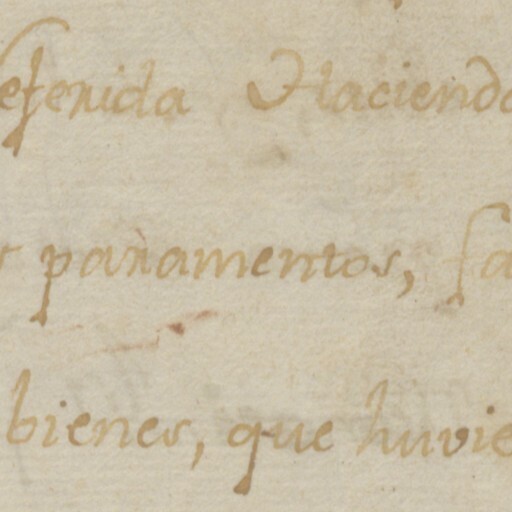 eferida Hacienda
paramentos, sa
bienes, que huvie